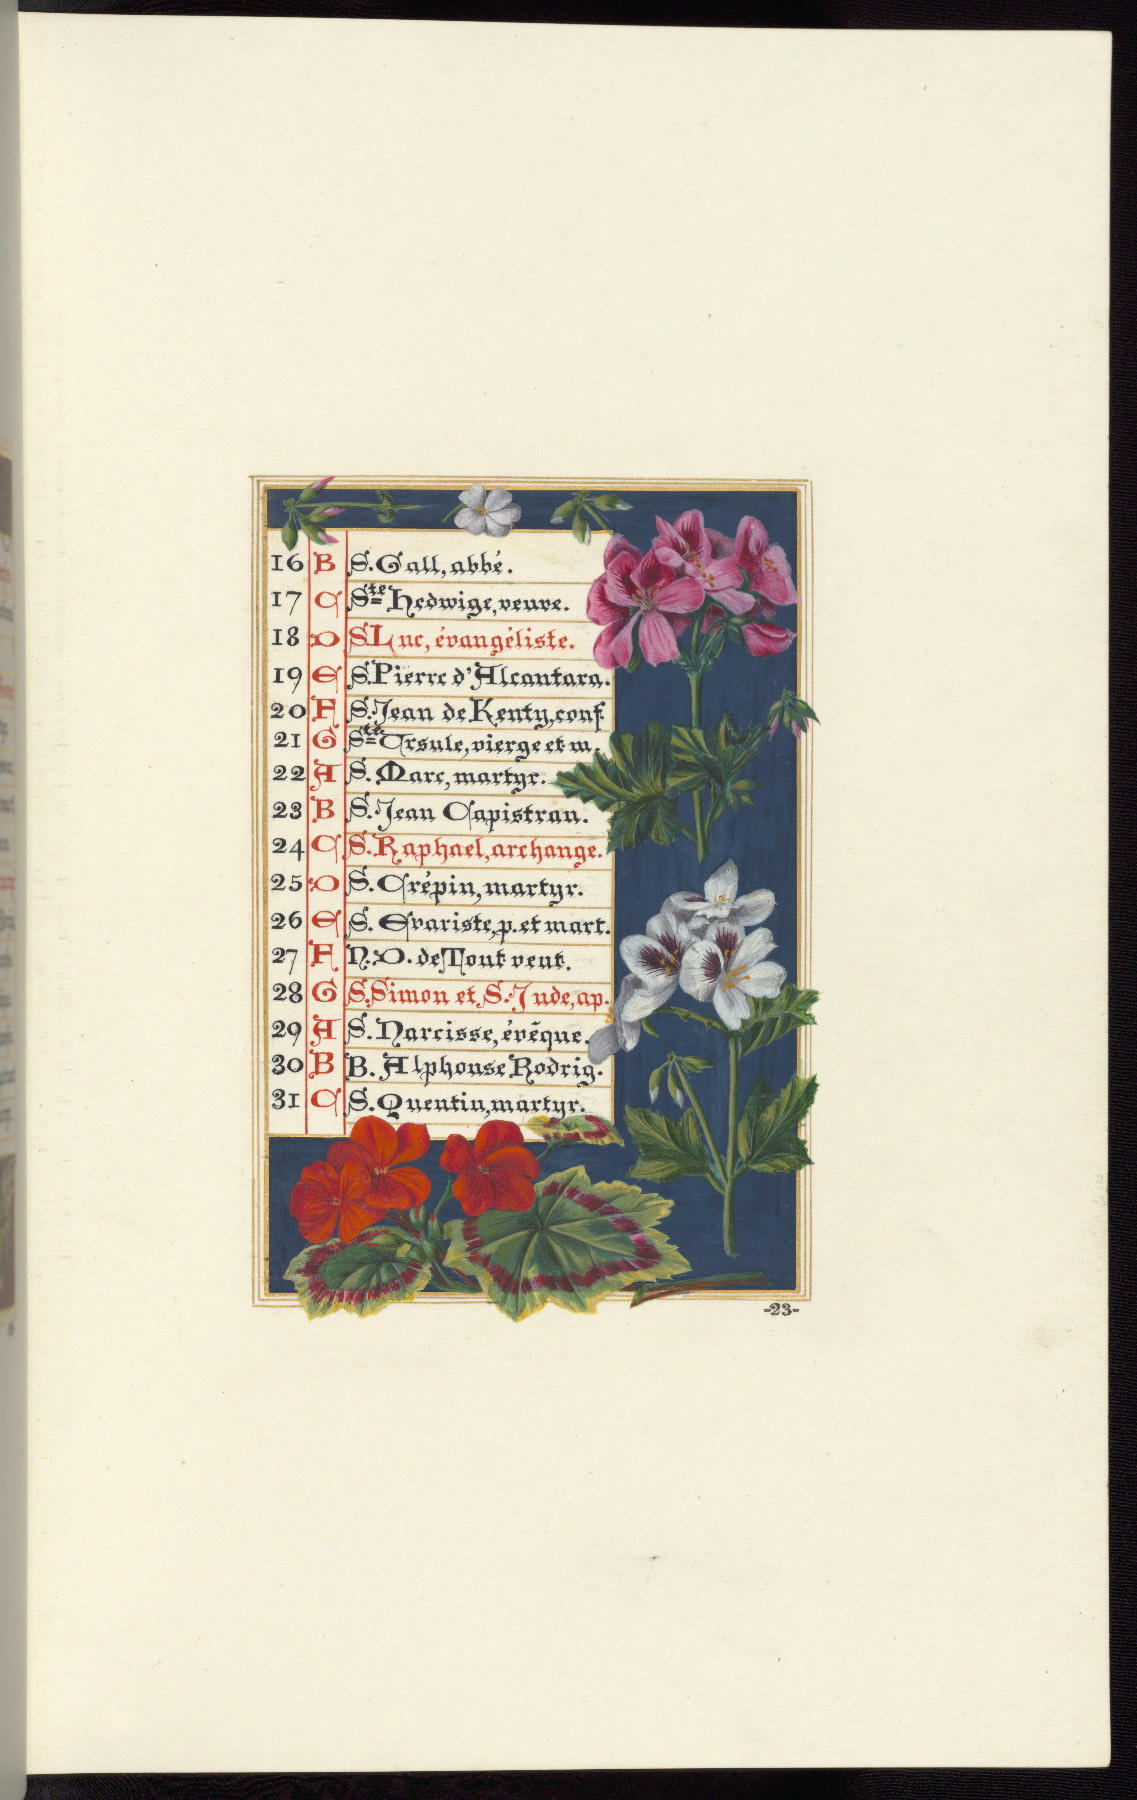 16 B S. Gall, abbé.
17 C Ste Hedwige, veuve.
18 D S Luc, évangéliste.
19 E S. Pierre d'Alcantara.
20 F S. Jean de Kenty, conf.
21 G Ste Ursule, vierge et m.
22 A S. Marc, martyr.
23 B S. Jean Capistran.
24 C S. Raphael, archange.
25 D S. Crépin, martyr.
26 E S. Evariste, p. et mart.
27 F N. D. de Tout vent.
28 G S. Simon et S. Jude, ap.
29 A S. Narcisse, évêque.
30 B B. Alphonse Rodrig.
31 C S. Quentin, martyr.
-23-